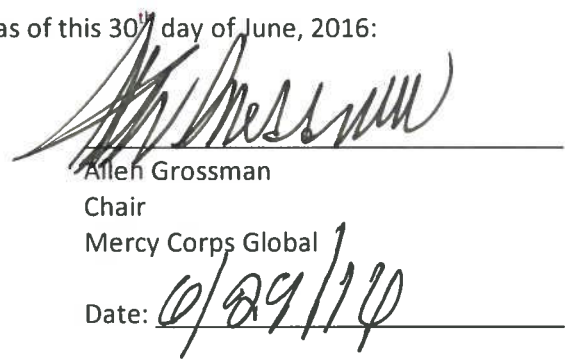 as of this 30th day of June, 2016:
Allen Grossman
Allen Grossman
Chair
Mercy Corps Global
Date: 6/29/16